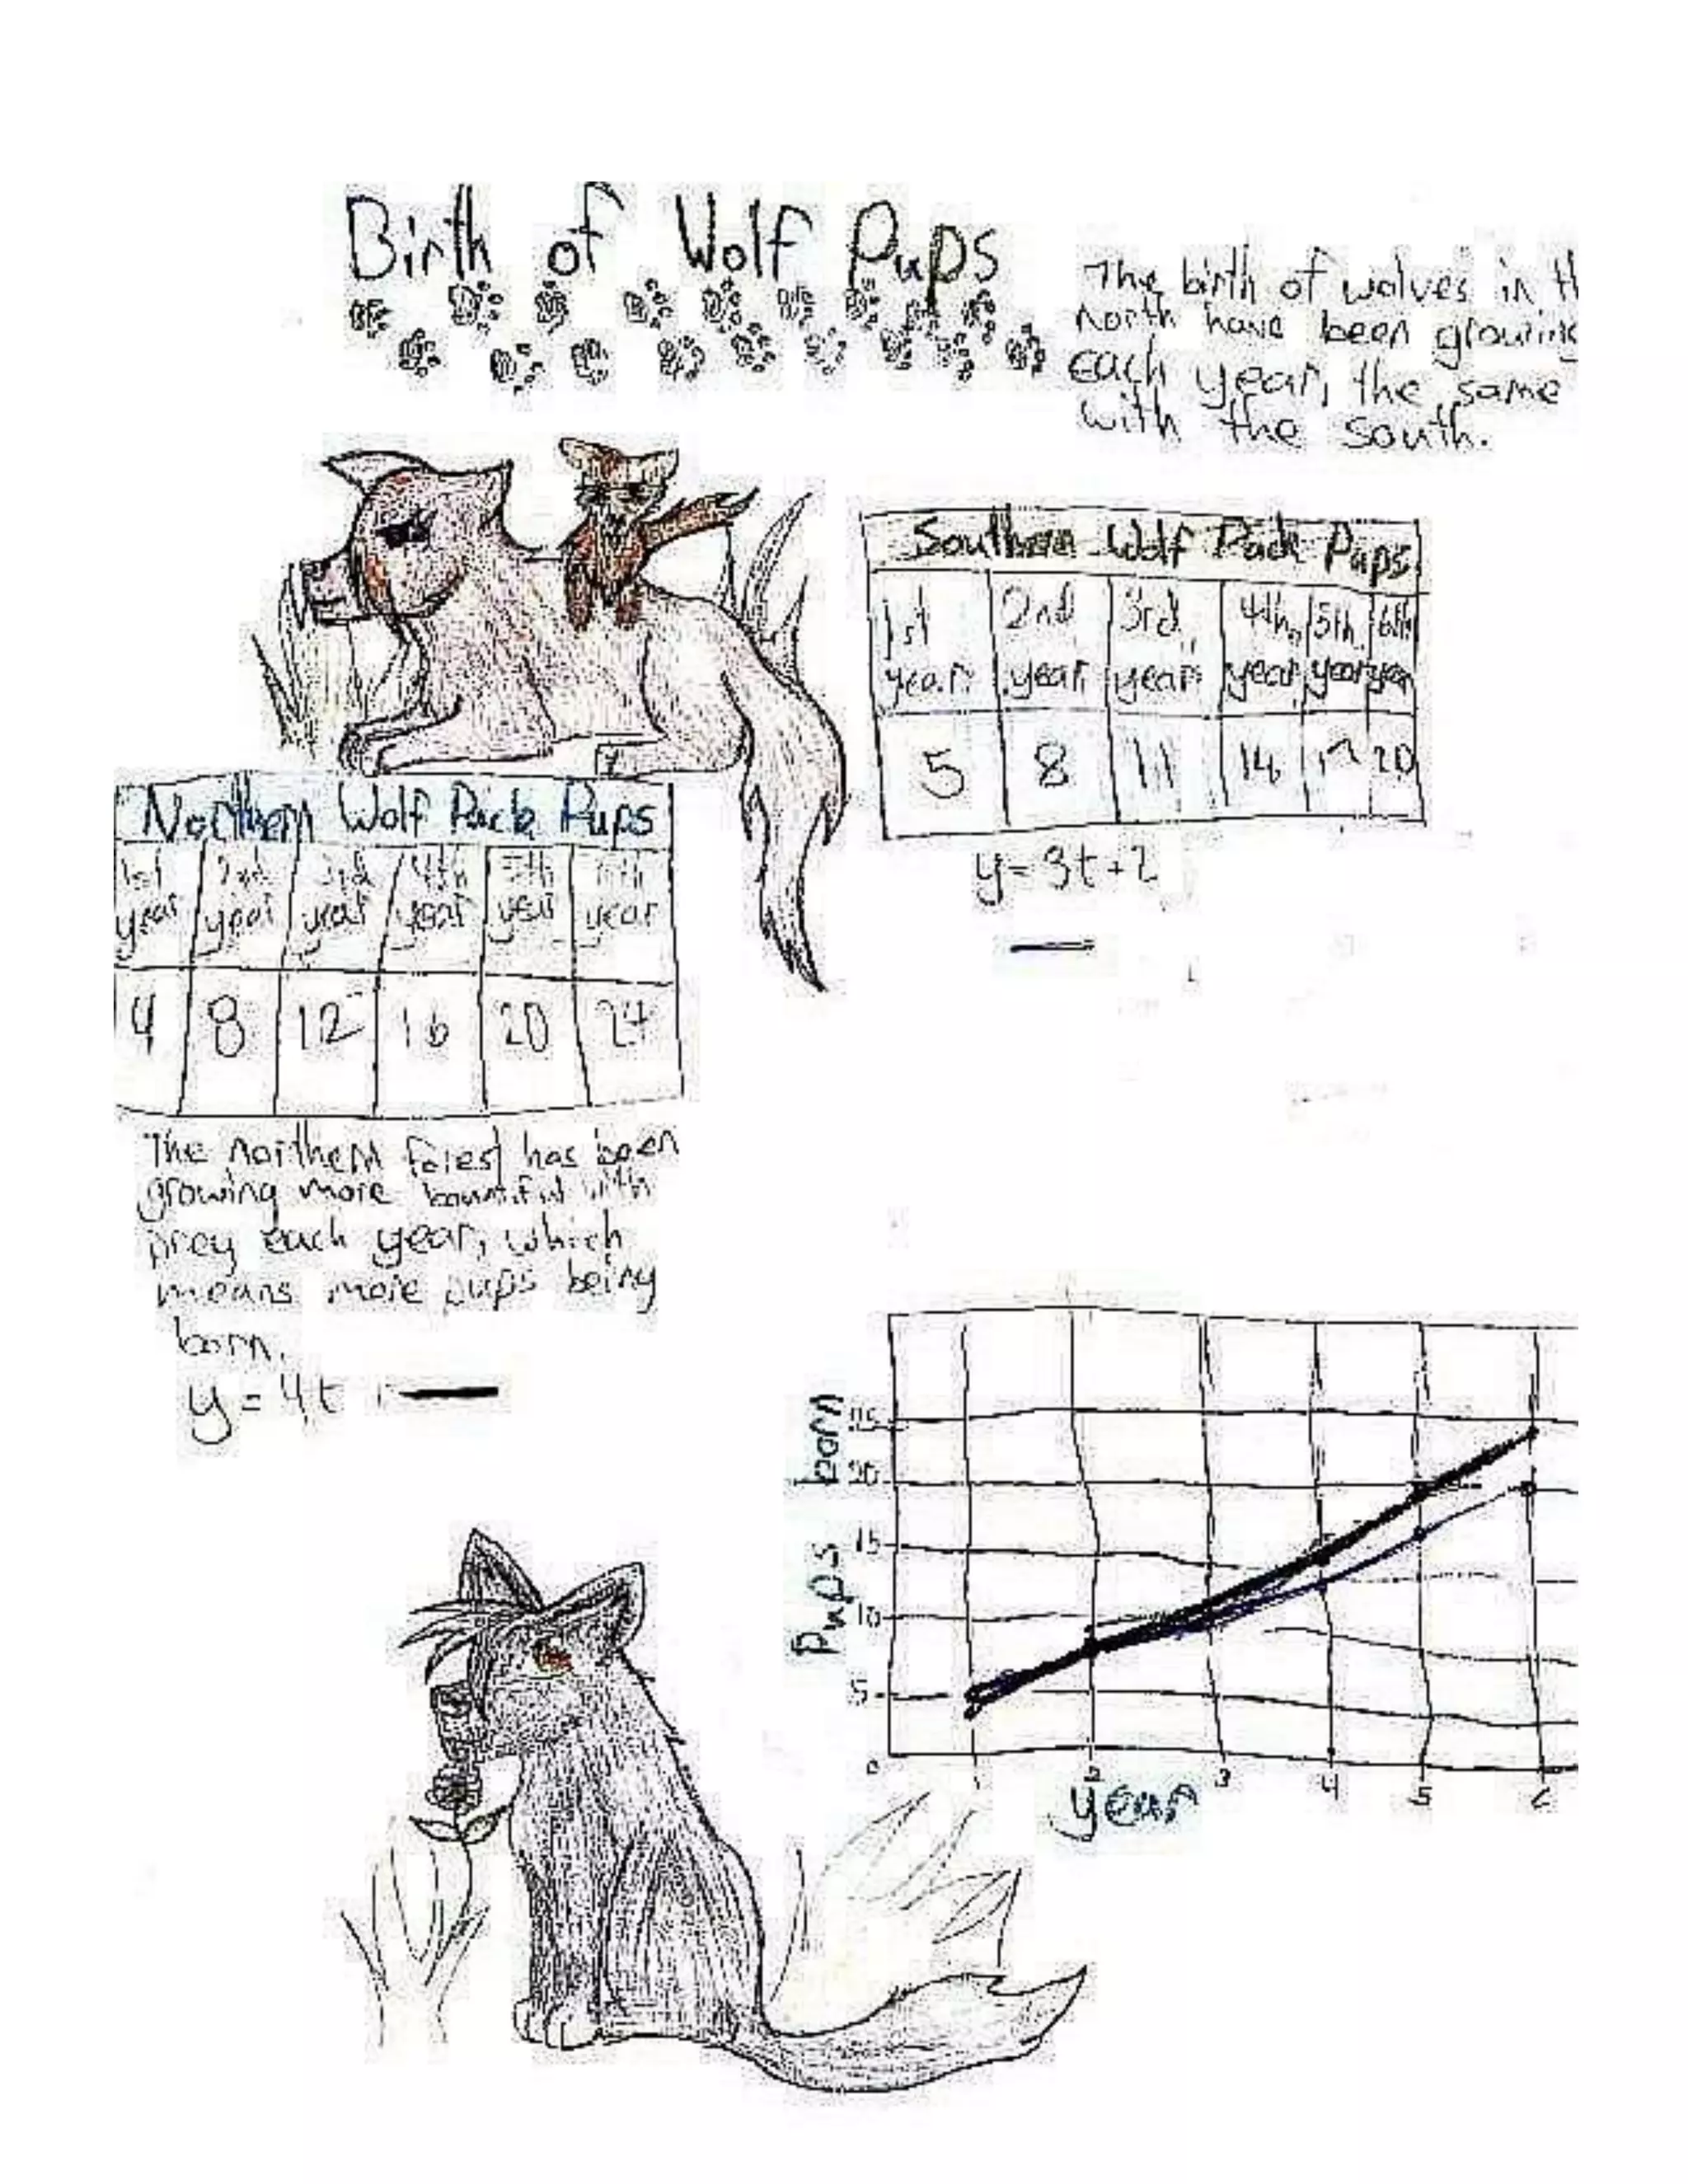 Birth of Wolf Pups
The birth of wolves in th
north have been growing
each year, the same
with the south.
Southern Wolf Pack Pups
1st year 2nd year 3rd year 4th year 5th year 6th year
5 8 11 14 17 20
y = 3t + 2
Northern Wolf Pack Pups
1st year 2nd year 3rd year 4th year 5th year year
4 8 12 16 20 24
The northern forest has been
growing more bountiful with
prey each year, which
means more pups being
born.
y = 4t
Pups born
20
15
10
5
0
1 2 3 4 5 6
year